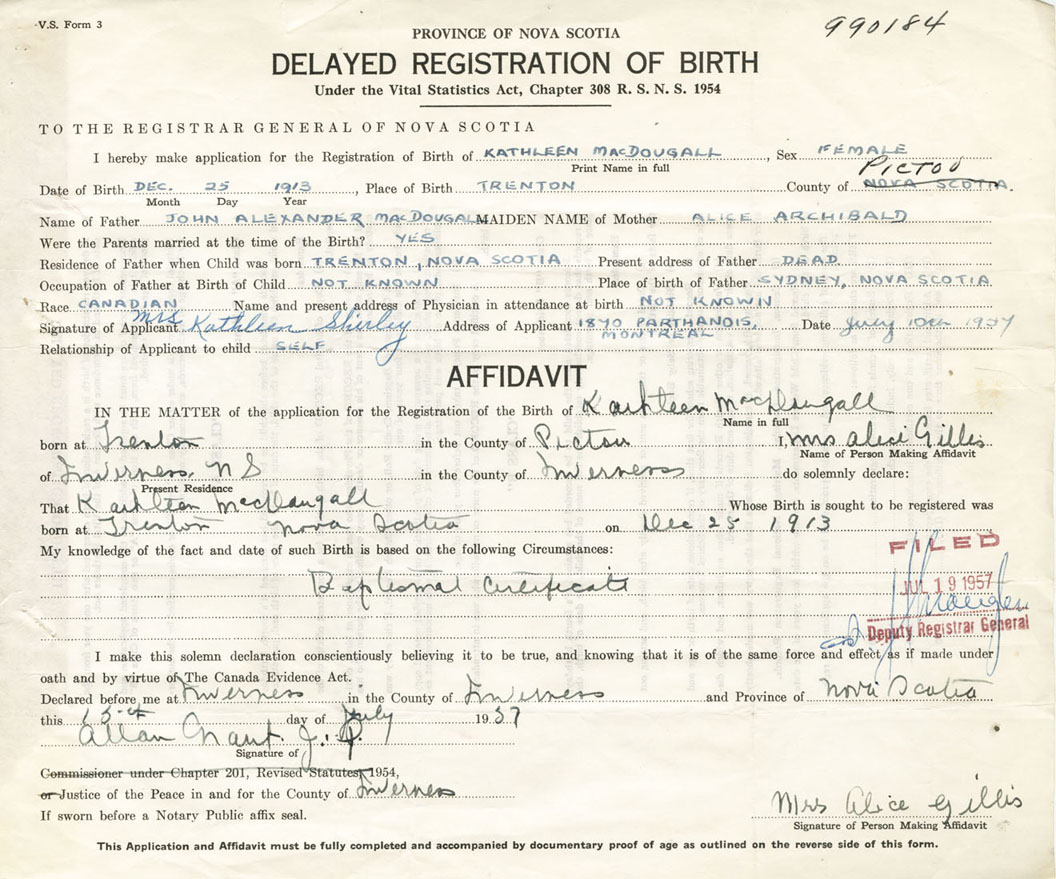 V.S. Form 3
990184
PROVINCE OF NOVA SCOTIA
DELAYED REGISTRATION OF BIRTH
Under the Vital Statistics Act, Chapter 308 R. S. N. S. 1954
TO THE REGISTRAR GENERAL OF NOVA SCOTIA
I hereby make application for the Registration of Birth of KATHLEEN MACDOUGALL, Sex FEMALE
Print Name in full
PICTOU
Date of Birth DEC. 25 1913, Place of Birth TRENTON County of NOVA SCOTIA.
Month Day Year
Name of Father JOHN ALEXANDER MACDOUGALL MAIDEN NAME of Mother ALICE ARCHIBALD
Were the Parents married at the time of the Birth? YES
Residence of Father when Child was born TRENTON, NOVA SCOTIA Present address of Father DEAD
Occupation of Father at Birth of Child NOT KNOWN Place of birth of Father SYDNEY, NOVA SCOTIA
Race CANADIAN Name and present address of Physician in attendance at birth NOT KNOWN
Signature of Applicant Mrs Kathleen Shirley Address of Applicant 1870 PARTHANOIS, Date July 10th 1957
MONTREAL
Relationship of Applicant to child SELF
AFFIDAVIT
IN THE MATTER of the application for the Registration of the Birth of Kathleen MacDougall
Name in full
born at Trenton in the County of Pictou I, Mrs Alice Gillis
Name of Person Making Affidavit
of Inverness, N S in the County of Inverness do solemnly declare:
Present Residence
That Kathleen MacDougall Whose Birth is sought to be registered was
born at Trenton Nova Scotia on Dec 25 1913
My knowledge of the fact and date of such Birth is based on the following Circumstances:
FILED
Baptismal Certificate
JUL 19 1957
Deputy Registrar General
I make this solemn declaration conscientiously believing it to be true, and knowing that it is of the same force and effect as if made under
oath and by virtue of The Canada Evidence Act.
Declared before me at Inverness in the County of Inverness and Province of Nova Scotia
this 15th day of July 1957
Allan Grant J. P.
Signature of
Commissioner under Chapter 201, Revised Statutes, 1954,
or Justice of the Peace in and for the County of Inverness
If sworn before a Notary Public affix seal.
Mrs Alice Gillis
Signature of Person Making Affidavit
This Application and Affidavit must be fully completed and accompanied by documentary proof of age as outlined on the reverse side of this form.